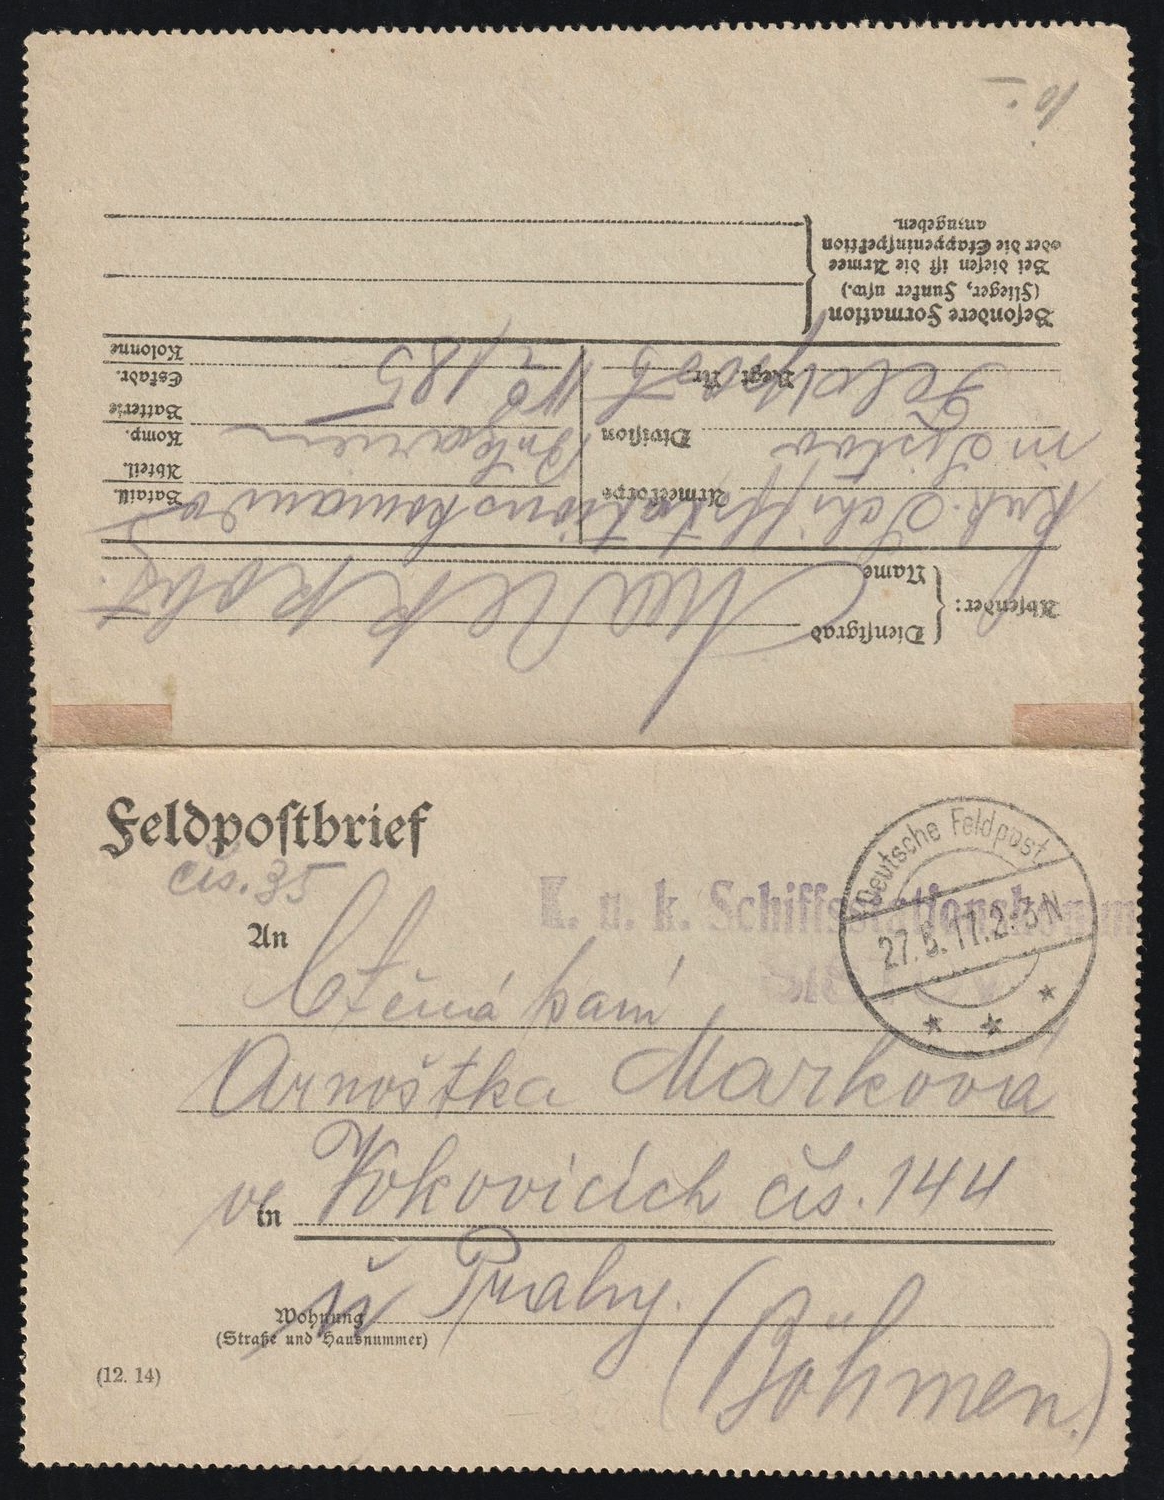 Feldpostbrief
čís. 35
K. u. k. Schiffsstationskomm
Deutsche Feldpost
27. 5. 17. 2-3 N
An
Ctěná paní
Arnoštka Marková
ve in Vokovicích čís. 144
u Prahy. (Böhmen.)
Wohnung
(Straße und Hausnummer)
(12. 14)
Absender:
Dienstgrad
Name
Marek
K.u.k. Schiffsstationskomando
in Sistov Bulgarien
Feldpost No 185
Armeekorps
Division
Regt. Nr.
Bataill.
Abteil.
Komp.
Batterie
Eskadr.
Kolonne
Besondere Formation
(Flieger, Funker usw.)
Bei diesen ist die Armee
oder die Etappeninspektion
anzugeben.